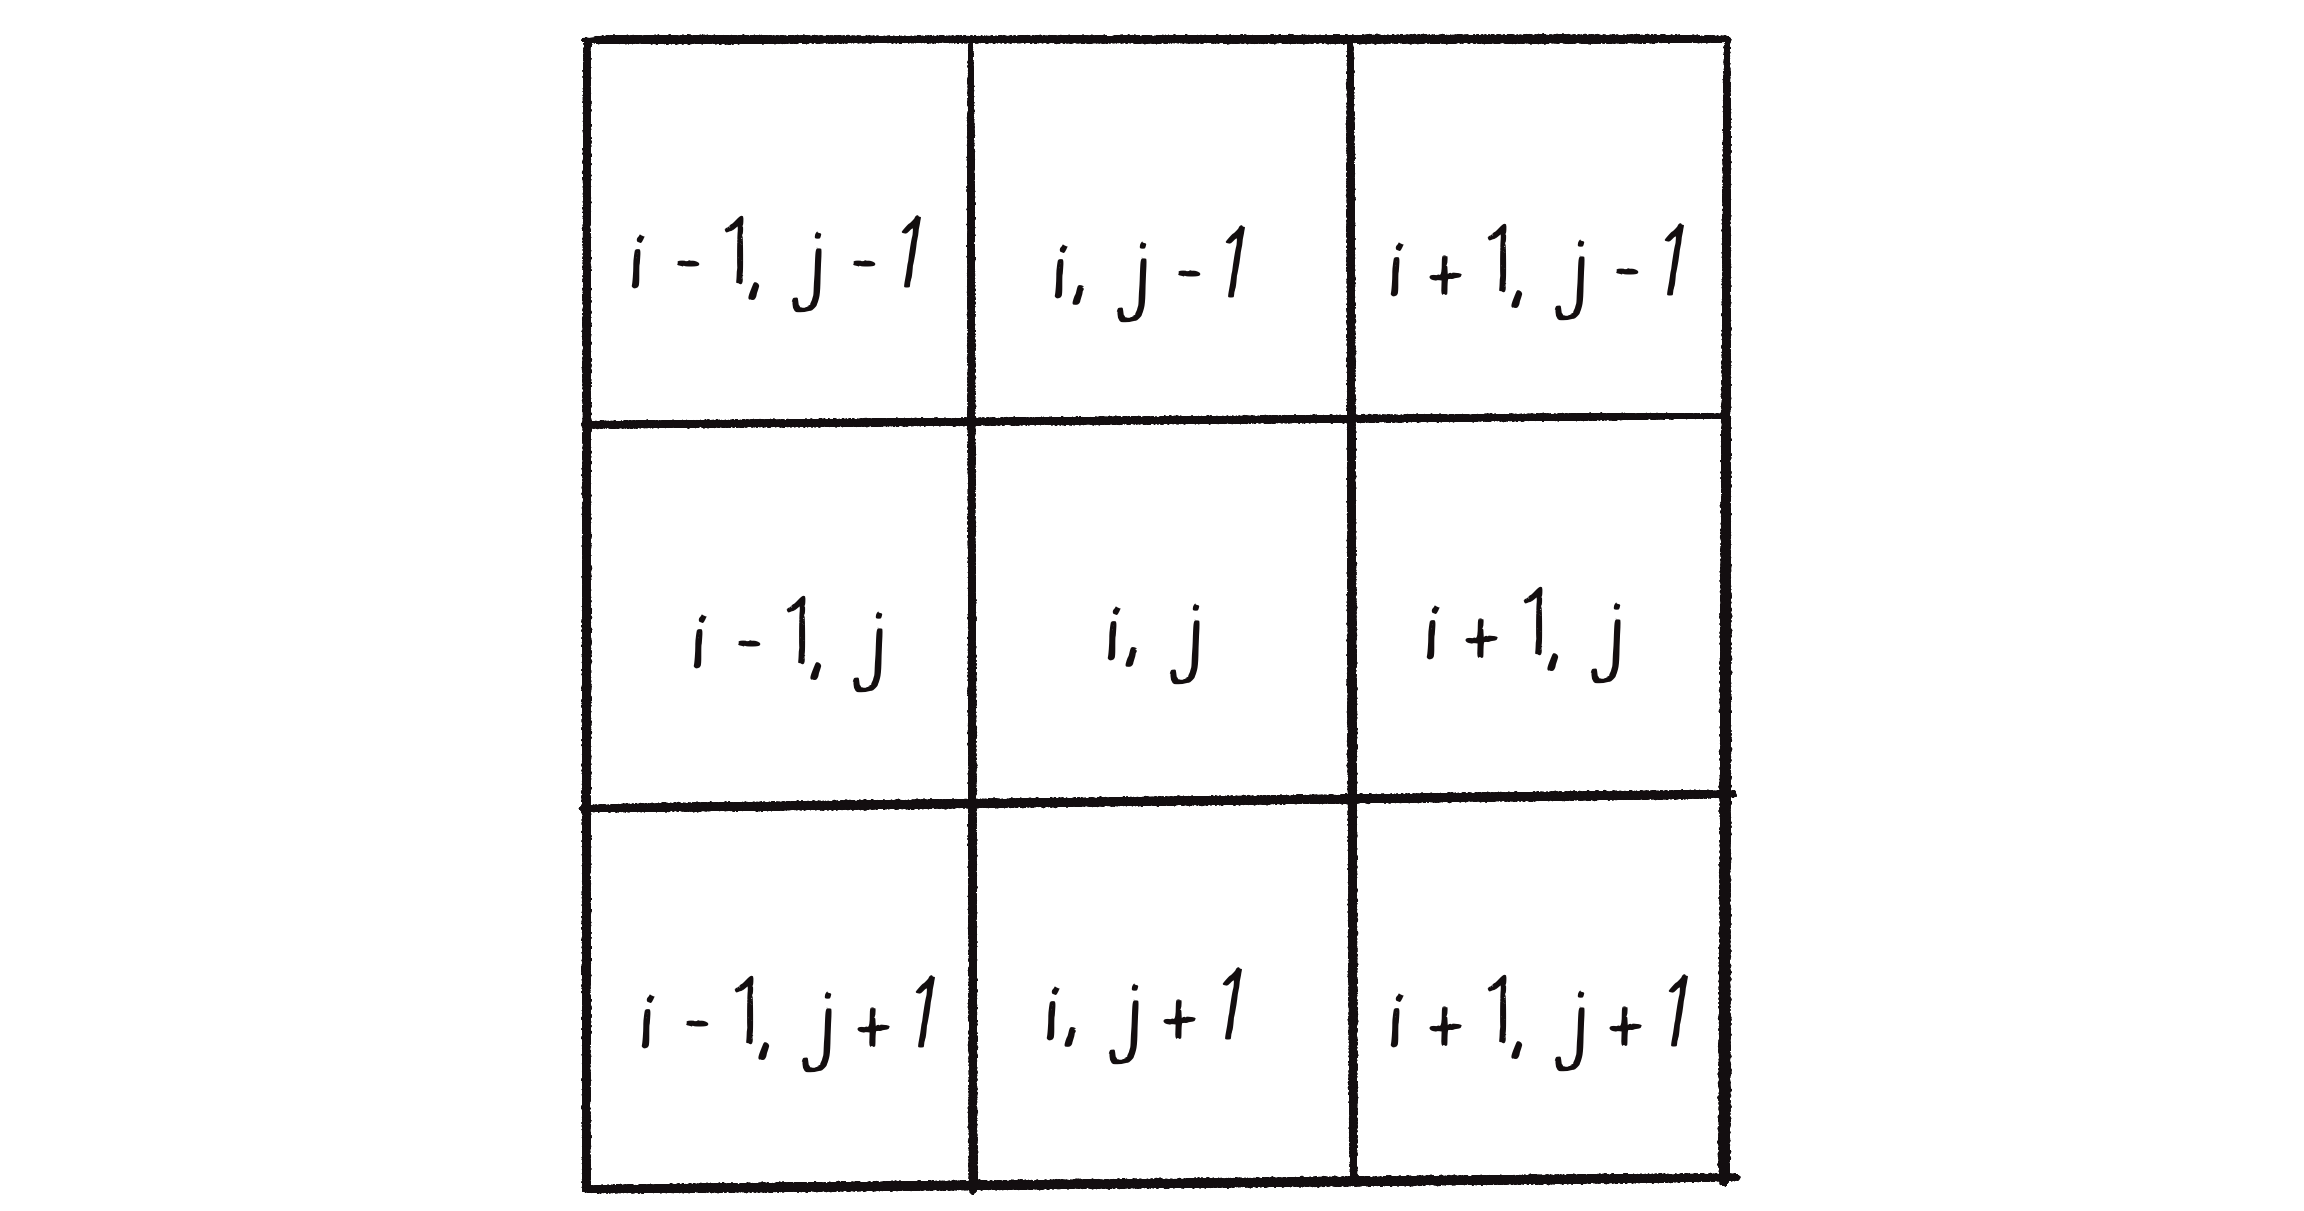 i - 1, j - 1
i, j - 1
i + 1, j - 1
i - 1, j
i, j
i + 1, j
i - 1, j + 1
i, j + 1
i + 1, j + 1